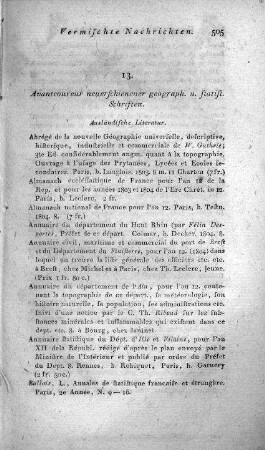 Vermischte Nachrichten. 505
13.
Avantcoureur neuerschienener geograph. u. statist.
Schriften.
Ausländische Literatur.
Abrégé de la nouvelle Géographie universelle, descriptive,
historique, industrielle et commerciale de W. Guthrie;
3te Ed. considérablement augm. quant à la topographie,
Ouvrage à l'usage des Prytanées, Lycées et Ecoles
condaires. Paris, b. Langlois. 1803. 8. m. 11 Charten (7fr.)
Almanach ecclésiastique de France pour l'an 12 de la
Rep. et pour les années 1803 et 1804 de l'Ere Chret. in 12.
Paris, b. Leclere, 2 fr.
Almanach national de France pour l'an 12. Paris, b. Testu,
1804. 8. (7 fr.)
Annuaire du département du Haut Rhin (par Félix Des-
portes), Préfet de ce départ. Colmar, b. Decker, 1804. 8.
Annuaire civil, maritime et commercial du port de Brest
et du Département du Finistere, pour l'an 12. (1804) dans
lequel on trouve la liste générale des officiers etc. etc.
à Brest, chez Michel et à Paris, chez Th. Leclerc, jeune.
(Prix 1 fr. 80 c.)
Annuaire du département de l'Ain, pour l'an 12. con-
tenant la topographie de ce départ., la météorologie,
histoire naturelle, la population, les administrations etc.
suivi d'une notice par le C. Th. Riboud sur les sub-
stances minérales et inflammables qui existent dans ce
dept. etc. 8. à Bourg, chez
Annuaire statistique du Dépt. d'Ille et Vilaine, pour l'an
XII de la Républ. rédigé d'après le plan envoyé par le
Ministre de l'Intérieur et publié par ordre du Préfet
du Dept. 8. Rennes, b. Robiquet, Paris, b. Garnery
(2 fr. 50c.)
Ballois, L., Annales de statistique francaise et étrangère.
Paris, 2e Année, N. 9—16.